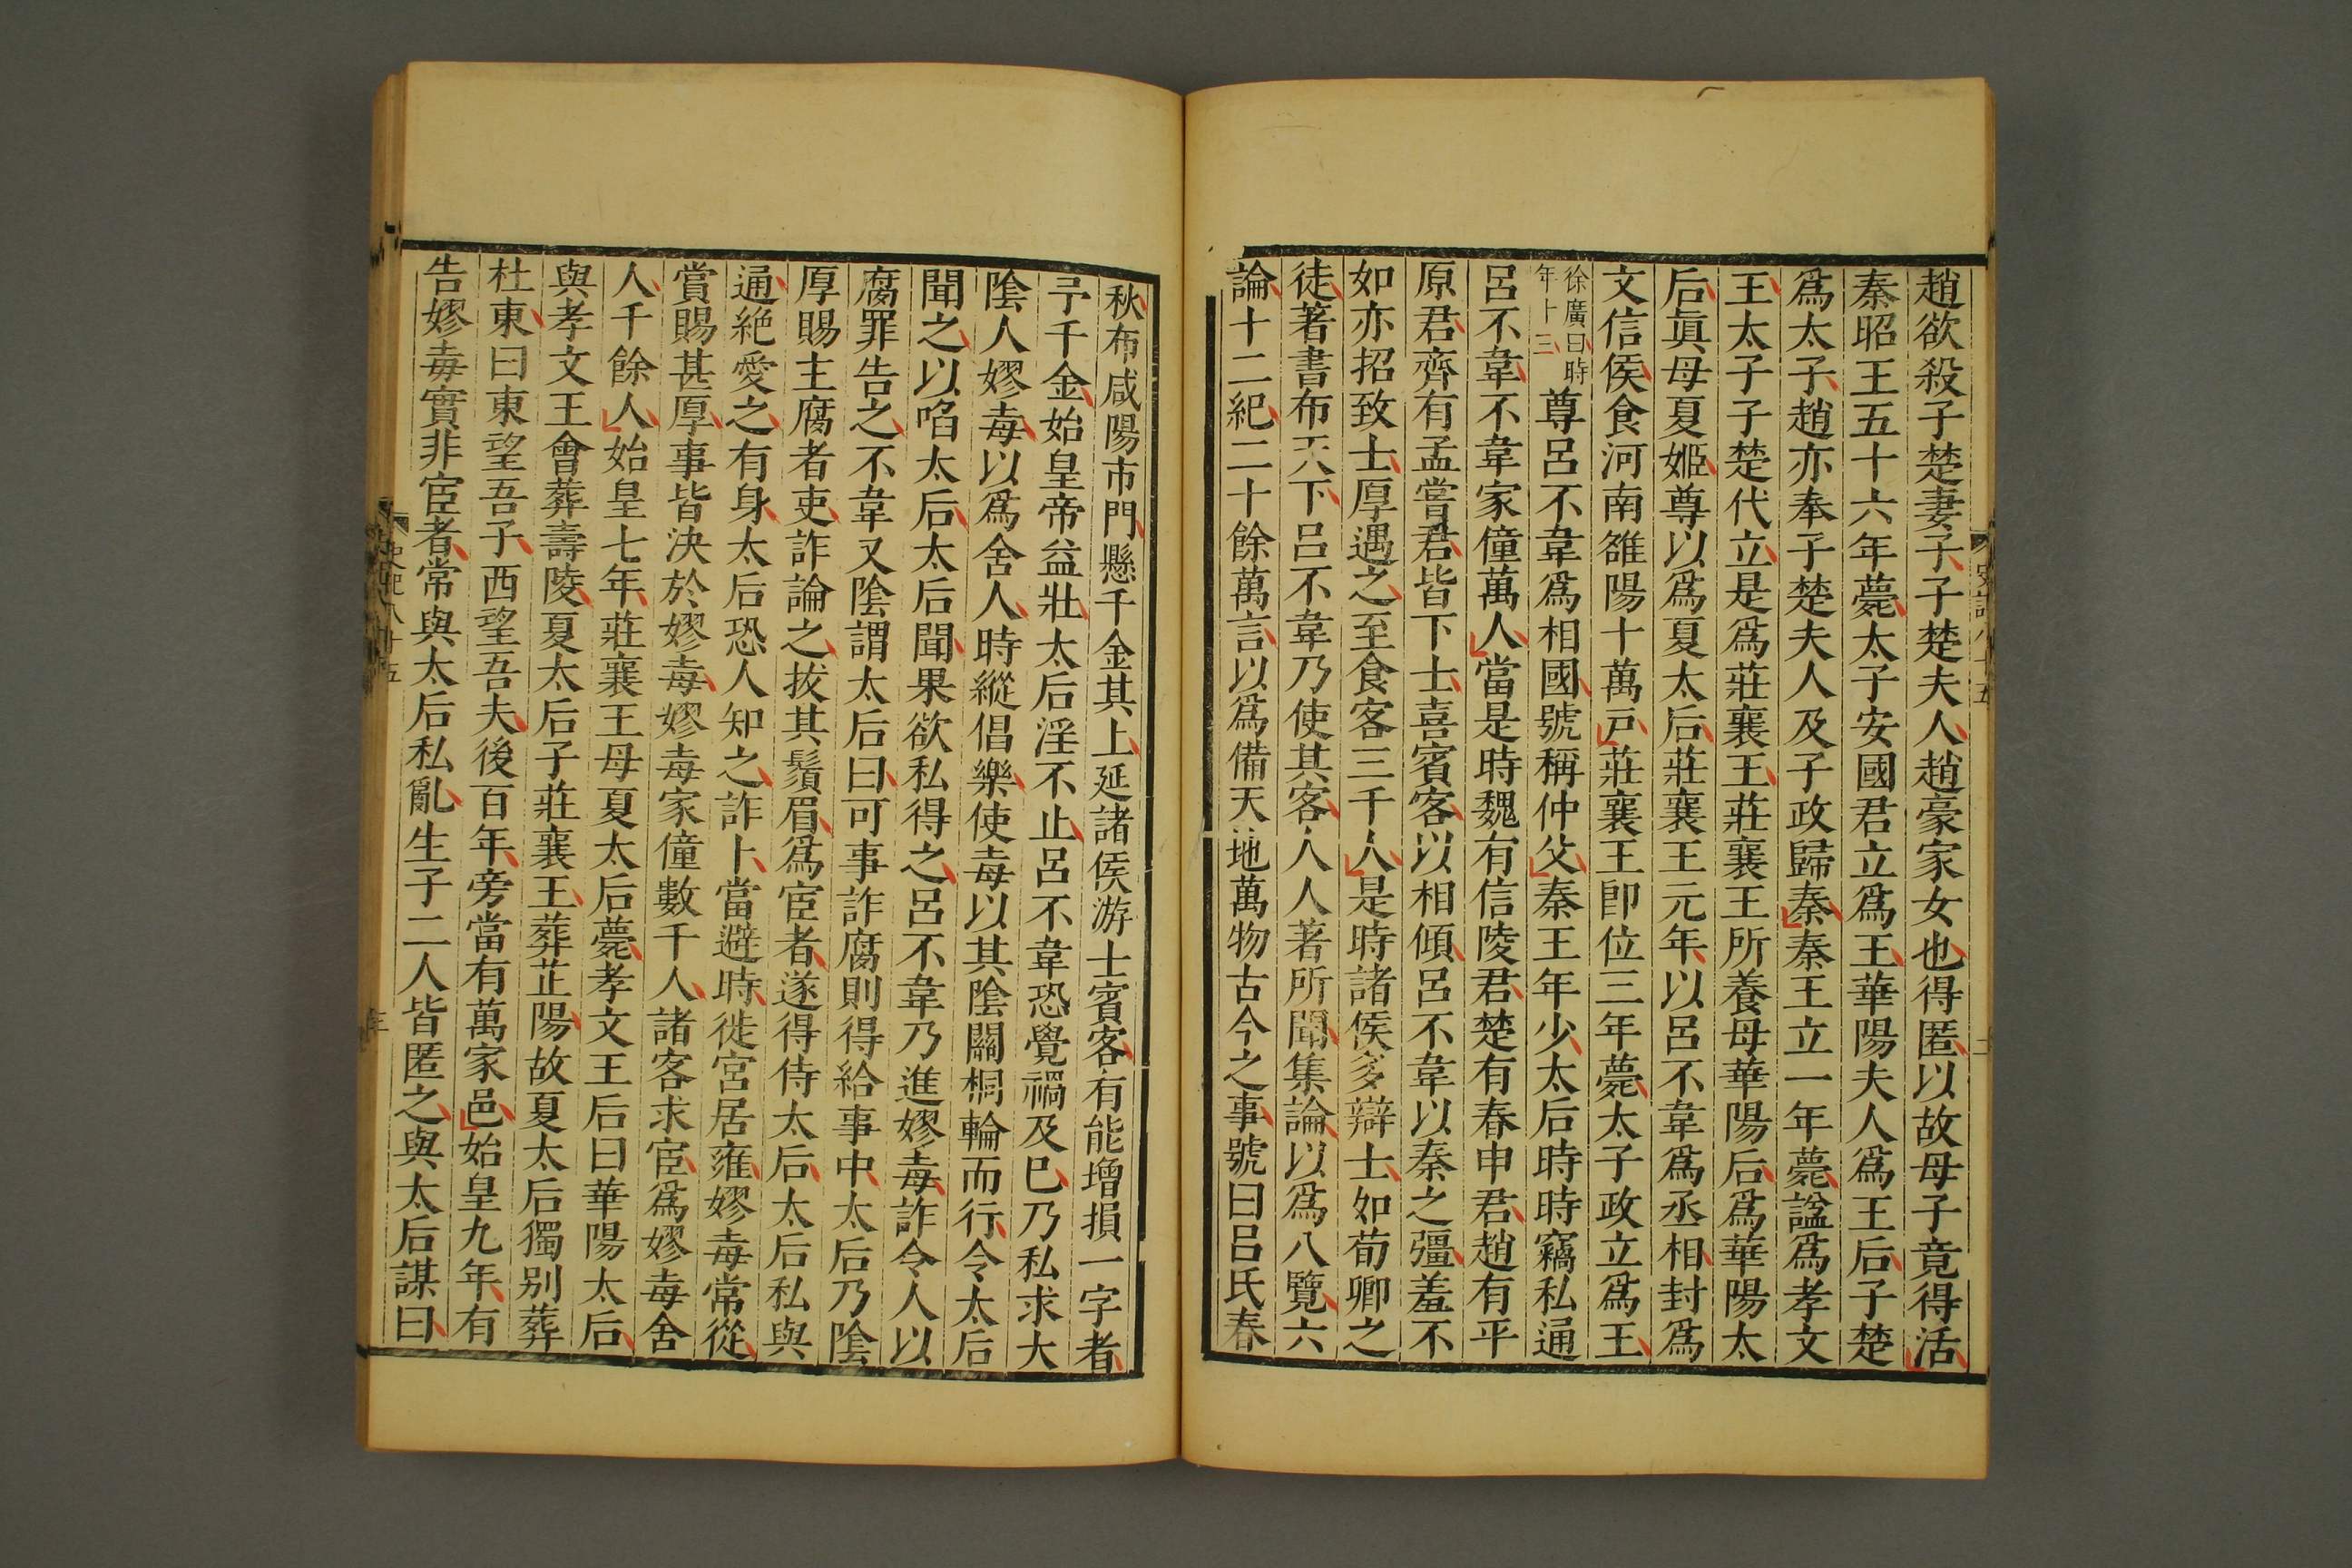 趙欲殺子楚妻子子楚夫人趙豪家女也得匿以故母子竟得活
秦昭王五十六年薨太子安國君立爲王華陽夫人爲王后子楚
爲太子趙亦奉子楚夫人及子政歸秦秦王立一年薨謚爲孝文
王太子子楚代立是爲莊襄王莊襄王所養母華陽后爲華陽太
后眞母夏姬尊以爲夏太后莊襄王元年以呂不韋爲丞相封爲
文信侯食河南雒陽十萬戸莊襄王即位三年薨太子政立爲王
徐廣曰時
年十三
尊呂不韋爲相國號稱仲父秦王年少太后時時竊私通
呂不韋不韋家僮萬人當是時魏有信陵君楚有春申君趙有平
原君齊有孟嘗君皆下士喜賓客以相傾呂不韋以秦之彊羞不
如亦招致士厚遇之至食客三千人是時諸侯多辯士如荀卿之
徒著書布天下呂不韋乃使其客人人著所聞集論以爲八覽六
論十二紀二十餘萬言以爲備天地萬物古今之事號曰呂氏春
史記八十五
二
秋布咸陽市門懸千金其上延諸侯游士賓客有能增損一字者
予千金始皇帝益壯太后淫不止呂不韋恐覺禍及巳乃私求大
陰人嫪毐以爲舍人時縱倡樂使毐以其陰關桐輪而行令太后
聞之以啗太后太后聞果欲私得之呂不韋乃進嫪毐詐令人以
腐罪告之不韋又陰謂太后曰可事詐腐則得給事中太后乃陰
厚賜主腐者吏詐論之拔其鬚眉爲宦者遂得侍太后太后私與
通絕愛之有身太后恐人知之詐卜當避時徙宮居雍嫪毐常從
賞賜甚厚事皆決於嫪毐嫪毐家僮數千人諸客求宦爲嫪毐舍
人千餘人始皇七年莊襄王母夏太后薨孝文王后曰華陽太后
與孝文王會葬壽陵夏太后子莊襄王葬芷陽故夏太后獨别葬
杜東曰東望吾子西望吾夫後百年旁當有萬家邑始皇九年有
告嫪毐實非宦者常與太后私亂生子二人皆匿之與太后謀曰
史記八十五